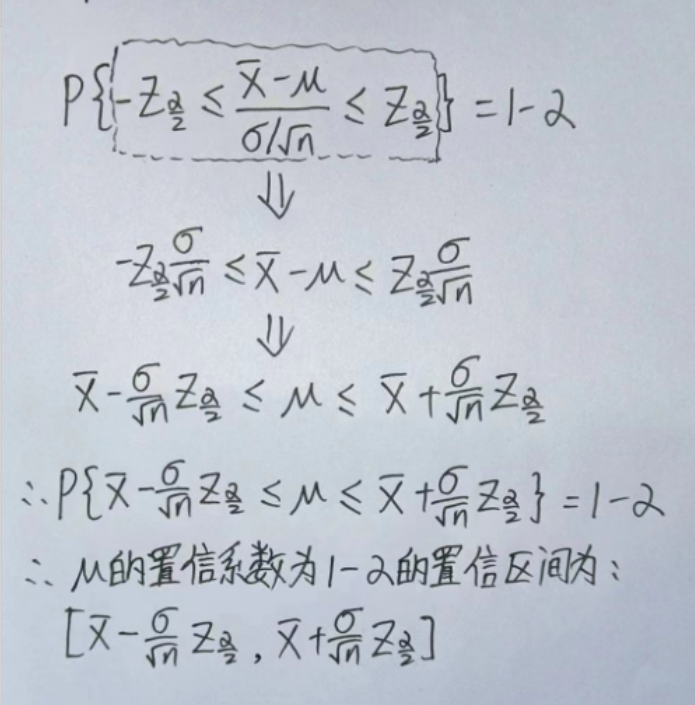 P{-Z_{α/2} ≤ (X̄-μ)/(σ/√n) ≤ Z_{α/2}} = 1-α
⇓
-Z_{α/2} σ/√n ≤ X̄-μ ≤ Z_{α/2} σ/√n
⇓
X̄ - σ/√n Z_{α/2} ≤ μ ≤ X̄ + σ/√n Z_{α/2}
∴ P{X̄ - σ/√n Z_{α/2} ≤ μ ≤ X̄ + σ/√n Z_{α/2}} = 1-α
∴ μ的置信系数为1-α的置信区间为:
[X̄ - σ/√n Z_{α/2}, X̄ + σ/√n Z_{α/2}]